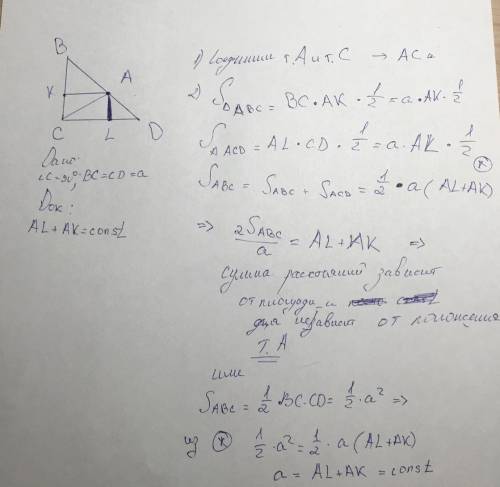 B
A
K
C
L
D
Дано:
∠C=90°, BC=CD=a
Док:
AL+AK=const
1) Соединим т. A и т. C → AC
2) S△ABC = BC•AK•1/2 = a•AK•1/2
S△ACD = AL•CD•1/2 = a•AL•1/2
SABC = SABC + SACD = 1/2•a(AL+AK) (*)
=> 2SABC/a = AL+AK =>
сумма расстояний зависит
от площади и
не зависит от положения
т. A
или
SABC = 1/2 BC•CD = 1/2•a² =>
из (*) 1/2•a² = 1/2•a(AL+AK)
a = AL+AK = const